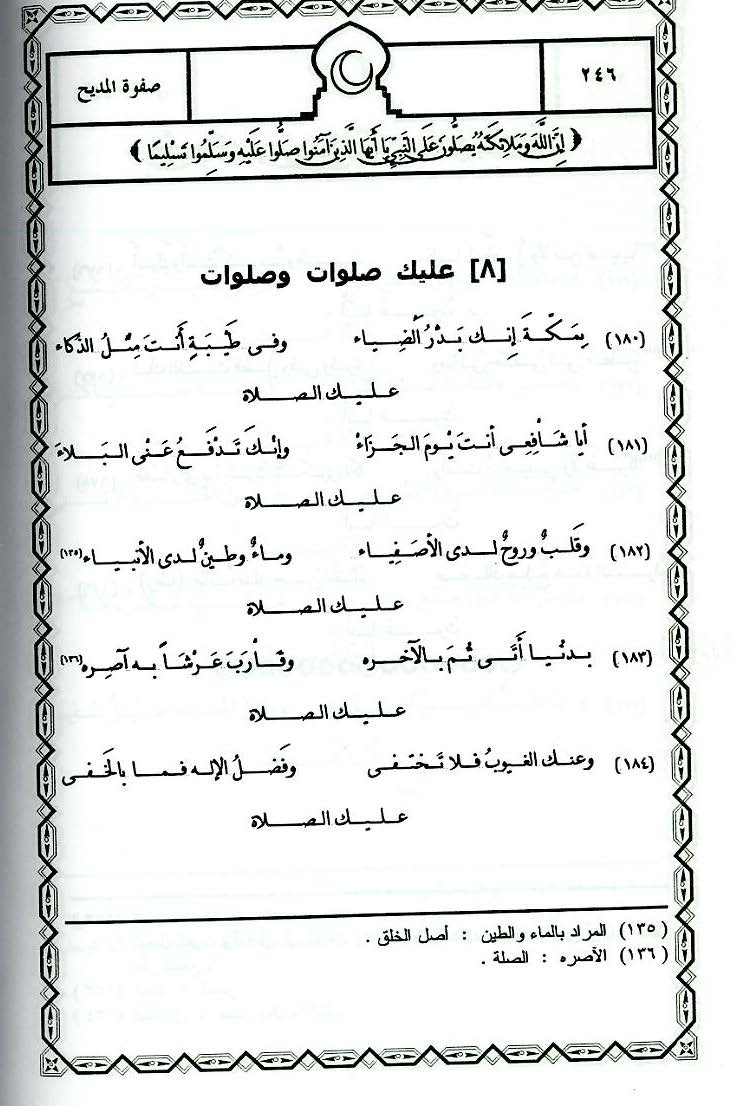 ٢٤٦
صفوة المديح
﴿ إِنَّ اللَّهَ وَمَلَائِكَتَهُ يُصَلُّونَ عَلَى النَّبِيِّ يَا أَيُّهَا الَّذِينَ آمَنُوا صَلُّوا عَلَيْهِ وَسَلِّمُوا تَسْلِيمًا ﴾
[٨] عليك صلوات وصلوات
(١٨٠) بِمَكَّةَ إنك بَدْرُ الضِيَاء وفى طَيْبَةِ أَنتَ مِثْلُ الذكاء
عليك الصلاة
(١٨١) أيا شَافِعِى أنتَ يْومَ الجَزَاءْ وإنكَ تَدْفَعُ عَنْى البَلاءَ
عليك الصلاة
(١٨٢) وقَلبٌ وروحٌ لدى الأصَفِيَاء وماءٌ وطينٌ لدى الأنبياء(١٣٥)
عليك الصلاة
(١٨٣) بدنُيا أَتَى ثُمَ بالآخره وقاَربَ عَرْشاً به آصِره(١٣٦)
عليك الصلاة
(١٨٤) وعنك الغيوبُ فلا تَختفى وفَضلُ الإله فما بالخَفى
عليك الصلاة
(١٣٥) المراد بالماء والطين : أصل الخلق .
(١٣٦) الآصره : الصلة .